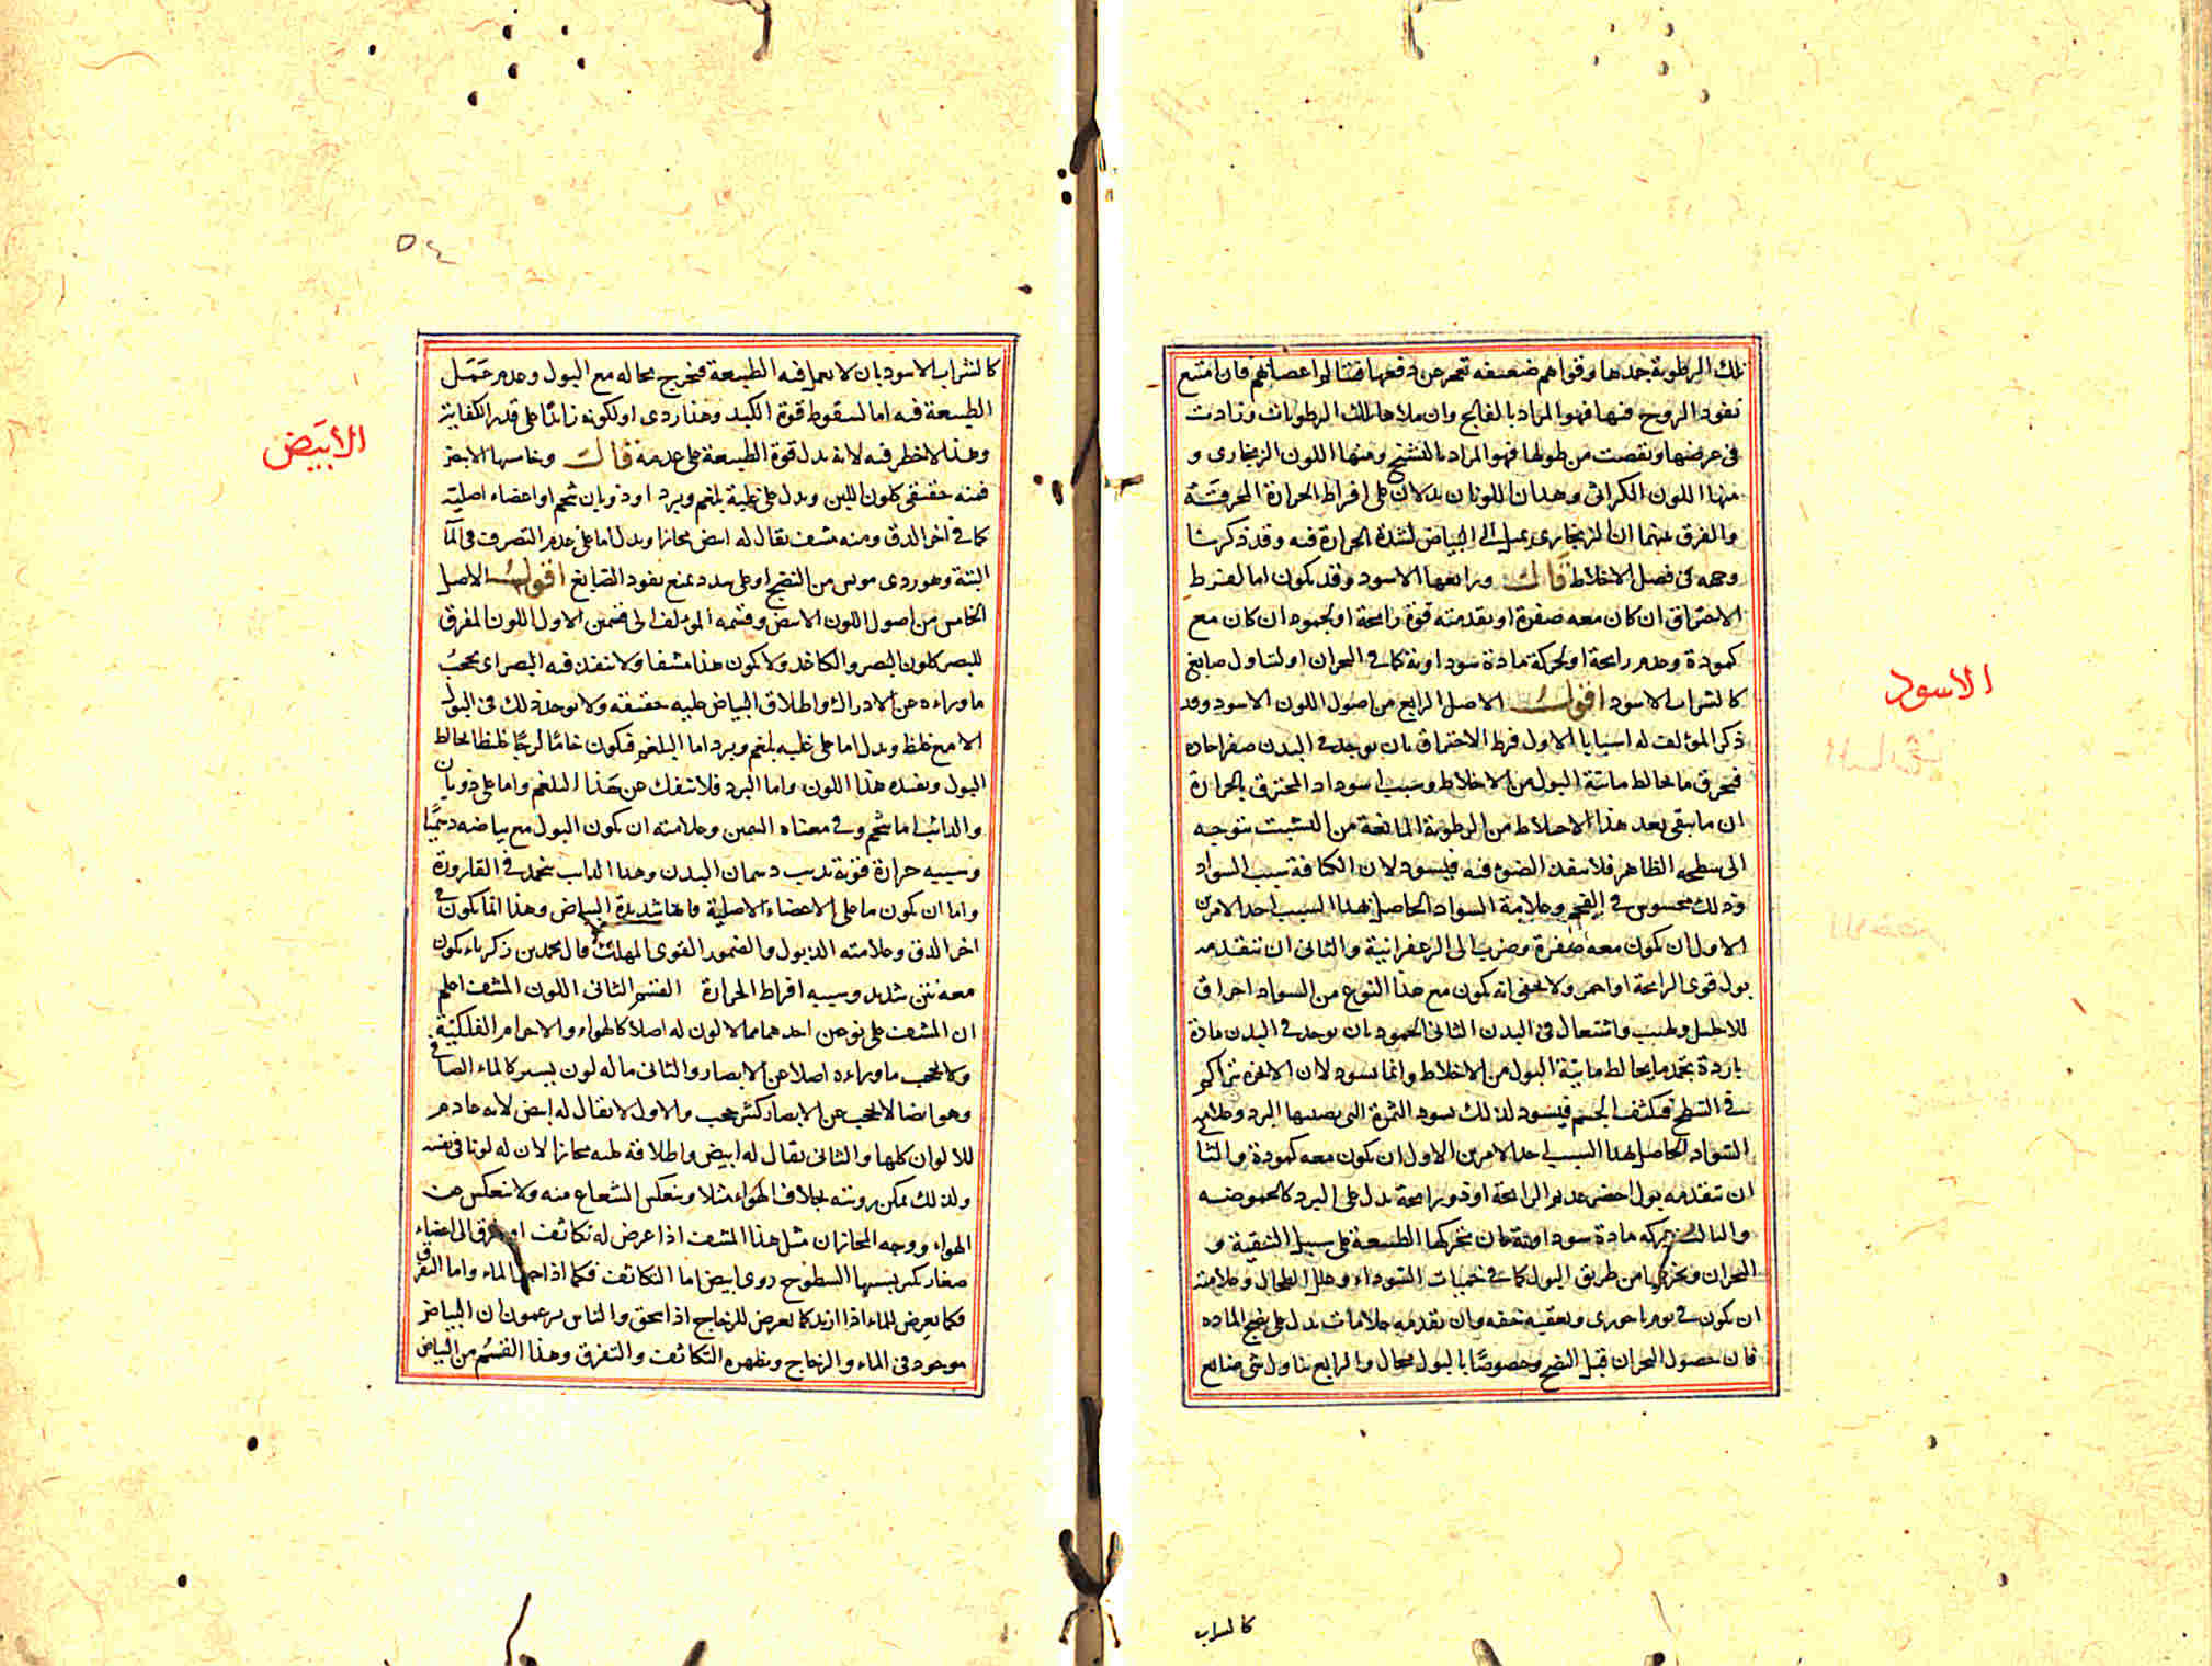 تلك الرطوبة بجمدها وقواهم ضعيفه تعجز عن دفعها قتالوا اعصابهم فان امتنع
نفوذ الروح فيها فهو المراد بالفالج وان ملاها تلك الرطوبات وزادت
فى عرضها ونقصت من طولها فهو المراد بالتشنج ومنها اللون الزنجارى و
منها اللون الكراثى وهذان اللونان يدلان على افراط الحرارة المحرقة
والفرق بينهما ان الزنجارى يميل الى البياض لشدة الحرارة فيه وقد ذكرنا
وجهه فى فصل الاخلاط قال ورابعها الاسود وقد يكون اما لفرط
الاحتراق ان كان معه صفرة او تقدمته قوة رايحة او لجمود ان كان مع
كمودة وعدم رايحة او لحركة مادة سوداوية كما فى البحران او لتناول صابغ
كالشراب الاسود اقول الاصل الرابع من اصول اللون الاسود وقد
ذكر المؤلف له اسبابا الاول فرط الاحتراق بان يوجد فى البدن صفرا حادة
فتحرق ما يخالط مائية البول من الاخلاط وسبب اسوداد المحترق بالحرارة
ان ما يبقى بعد هذا الاخلاط من الرطوبة المانعة من التشبث بتوجه
الى سطحه الظاهر فلا ينفذ الضوء فيه فيسود لان الكثافة سبب السواد
وذلك محسوس فى الفحم وعلامة السواد الحاصل بهذا السبب احد الامرين
الاول ان يكون معه صفرة وضرب الى الزعفرانية والثانى ان تتقدمه
بول قوى الرايحة او احمر ولا يخفى انه يكون مع هذا النوع من السواد احراق
للاحليل ولهيب واشتعال فى البدن الثانى الجمود بان يوجد فى البدن مادة
باردة تجمد ما يخالط مائية البول من الاخلاط وانما يسود لان الابخرة تتراكم
فى السطح فيكثف الجسم فيسود لذلك يسود الثمرة التى يصيبها البرد وعلامة
السواد الحاصل بهذا السبب احد الامرين الاول ان يكون معه كمودة والثا
ان تتقدمه بول اخضر عديم الرايحة او ذو رايحة يدل على البرد كالحموضه
والثالث حركة مادة سوداوية بان تحركها الطبيعة على سبيل التنقية و
البحران وتخرجها من طريق البول كما فى حميات السوداء وعلل الطحال وعلامته
ان يكون فى يوم باحورى ويعقبه خفه وان تقدمه علامات يدل على نضج الماده
فان حصول البحران قبل النضج وخصوصا بالبول محال والرابع تناول شى صابغ
كالشراب
الاسود
كالشراب الاسود بان لا يعمل فيه الطبيعة فتخرج بحاله مع البول وعدم عمل
الطبيعة فيه اما لسقوط قوة الكبد وهذا ردى او لكونه زايدا على قدر الكفاية
وهذا لا خطر فيه لانه يدل قوة الطبيعة على عدمه قال وخامسها الابيض
فمنه حقيقى كلون اللبن ويدل على غلبة بلغم وبرد او ذوبان شحم او اعضاء اصلية
كما فى اخر الدق ومنه مشف يقال له ابيض مجازا ويدل اما على عدم التصرف فى الما
البتة وهو ردى مويس من النضج او على سدد يمنع نفوذ الصابغ اقول الاصل
الخامس من اصول اللون الابيض وقسمه المؤلف الى قسمين الاول اللون المفرق
للبصر كلون البصر والكاغد ولا يكون هذا مشفا ولا ينفذ فيه البصر اى يحجب
ما وراءه عن الادراك واطلاق البياض عليه حقيقه ولا يوجد ذلك فى البول
الا مع غلظ ويدل اما على غلبه بلغم وبرد اما البلغم فيكون خاما لزجا غليظا يخالط
البول ويفيده هذا اللون واما البرد فلا ينفك عن هذا البلغم واما على ذوبان
والذائب اما شحم وفى معناه السمين وعلامته ان يكون البول مع بياضه دسميا
وسببه حرارة قوية تذيب دسمان البدن وهذا الذايب ينجمد فى القارورة
واما ان يكون ما على الاعضاء الاصلية فانها شديدة البياض وهذا انما يكون فى
اخر الدق وعلامته الذبول والضمور القوى المهلك قال محمد بن زكرياء يكون
معه نتن شديد وسببه افراط الحرارة القسم الثانى اللون المشف اعلم
ان المشف على نوعين احدهما ما لا لون له اصلا كالهواء والاجرام الفلكية
ولا يحجب ما وراءه اصلا عن الابصار والثانى ما له لون يسير كالماء الصافى
وهو ايضا لا يحجب عن الابصار كثير حجب والاول لا يقال له ابيض لانه عادم
للالوان كلها والثانى يقال له ابيض واطلاقه عليه مجازا لان له لونا فى نفسه
ولذلك يمكن رويته بخلاف الهواء مثلا وينعكس الشعاع منه ولا ينعكس عن
الهواء ووجه المجاز ان مثل هذا المشف اذا عرض له تكاثف او تفرق الى اجزاء
صغار يكثر بسببها السطوح روى ابيض اما التكاثف فكما اذا جمد الماء واما التفرق
فكما يعرض للماء اذا ازبد كما يعرض للزجاج اذا سحق والناس يزعمون ان البياض
موجود فى الماء والزجاج ويظهره التكاثف والتفرق وهذا القسم من البياض
الابيض
٥٤